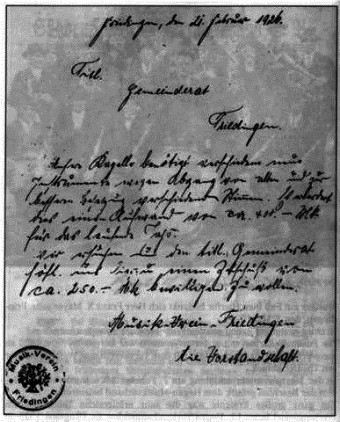 Friedingen, den 21. Februar 1926.
Titl.
Gemeinderat
Friedingen.
Unsere Kapelle benötigt verschiedene neue
Instrumente wegen Abgang von alten und zur
bessern verschiedener Stimmen. Es erfordert
dies einen Aufwand von ca. 400.- Mk
für das laufende Jahr.
Wir ersuchen den titl. Gemeinderat
höfl. uns hierzu einen Zuschuß von
ca. 250.- Mk bewilligen zu wollen.
Musik-Verein Friedingen
die Vorstandschaft.
Musik-Verein
Friedingen